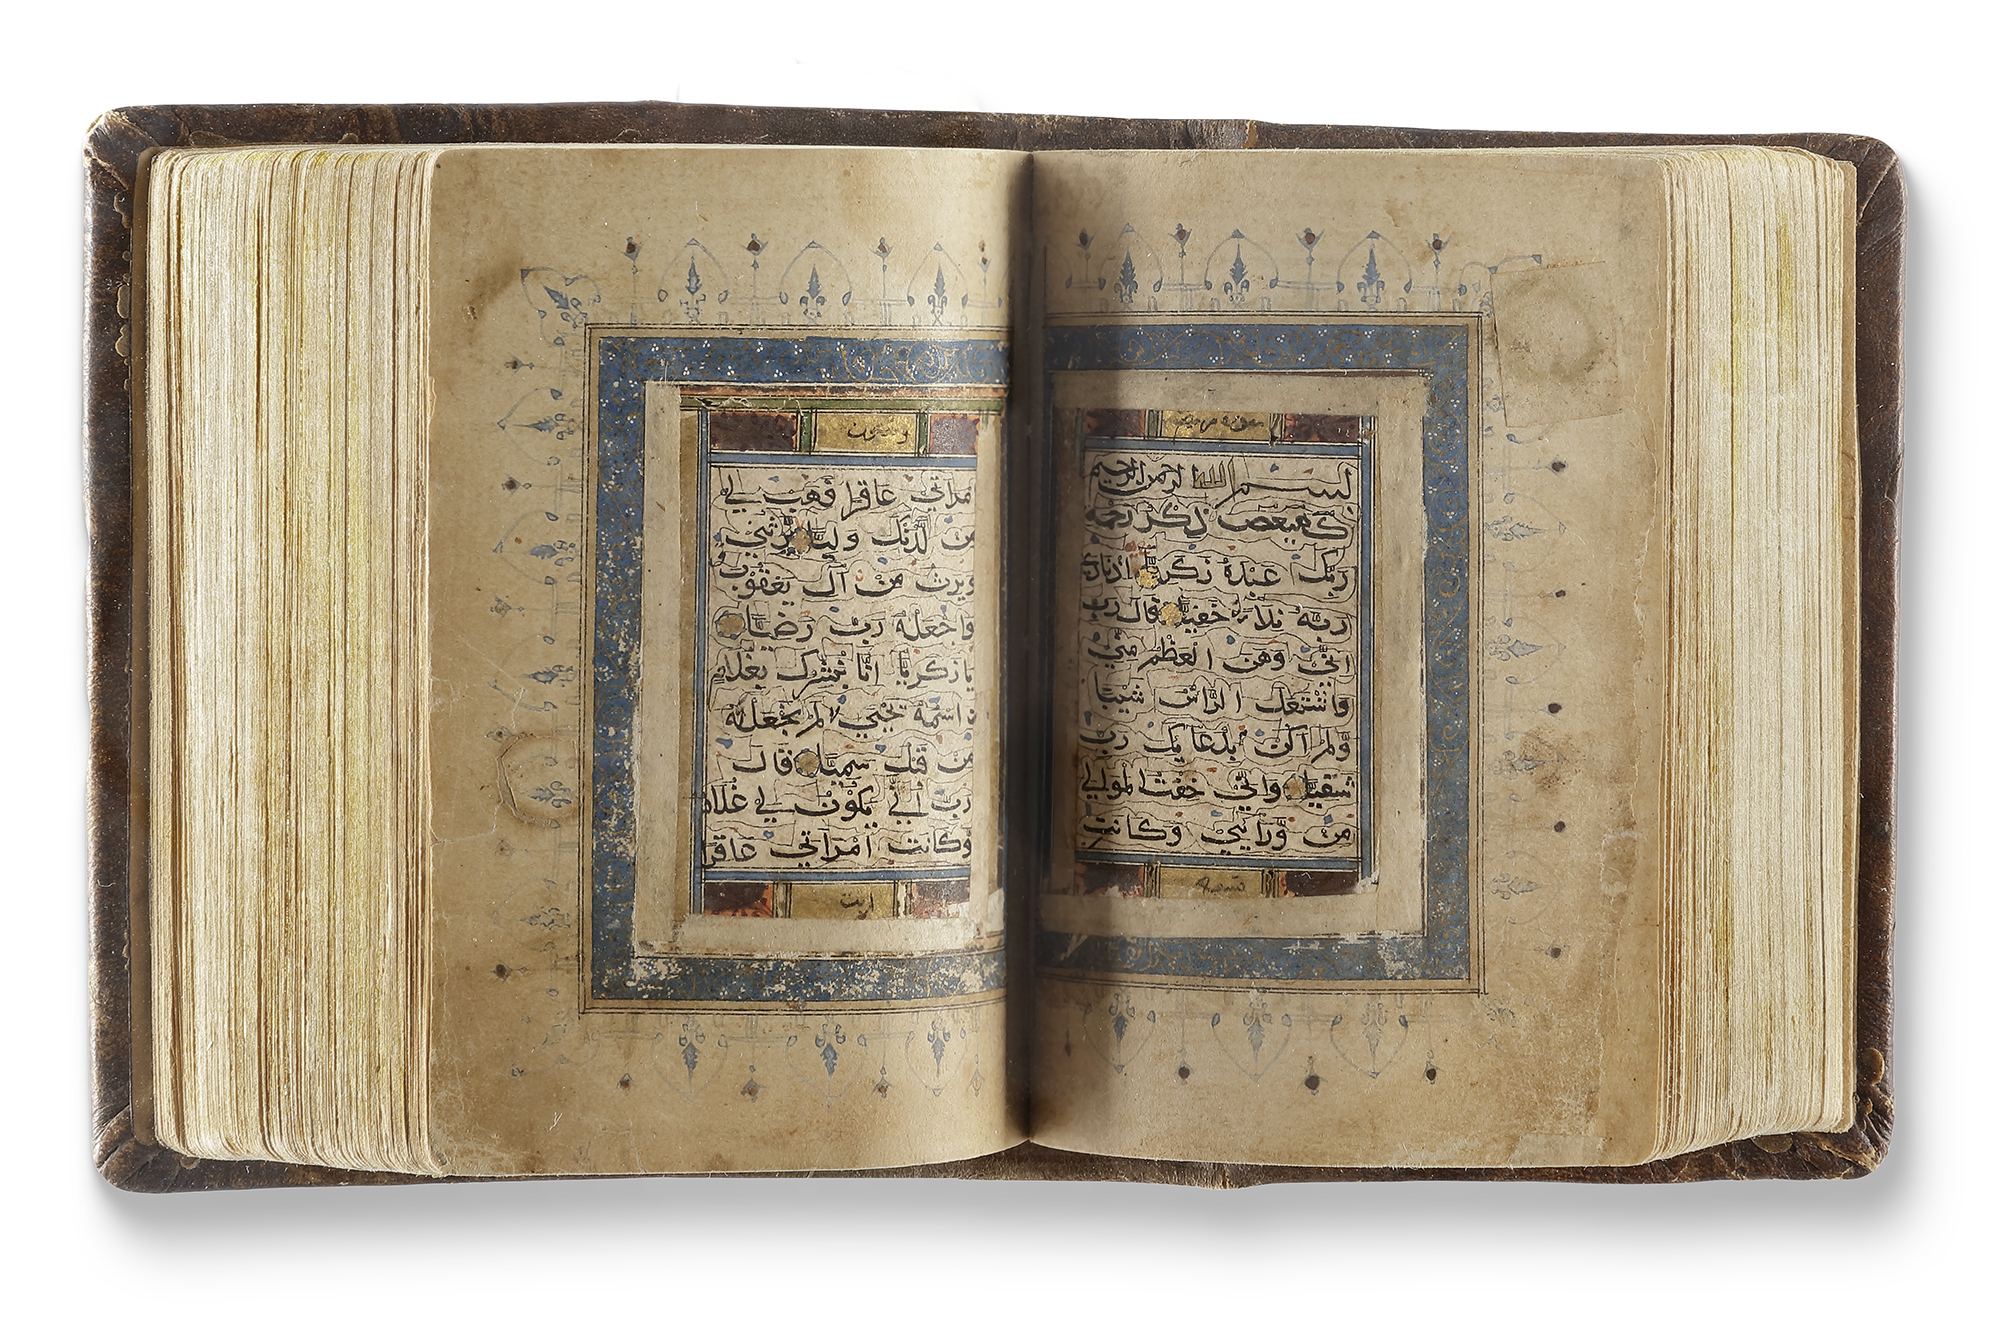 سورة مريم
بسم الله الرحمن الرحيم
كهيعص ذكر رحمة
ربك عبده زكريا اذ نادى
ربه نداء خفيا قال رب
اني وهن العظم مني
واشتعل الراس شيبا
ولم اكن بدعائك رب
شقيا واني خفت الموالي
من ورائي وكانت
امراتي عاقرا فهب لي
من لدنك وليا يرثني
ويرث من آل يعقوب
واجعله رب رضيا
يا زكريا انا نبشرك بغلام
اسمه يحيى لم نجعل له
من قبل سميا قال
رب اني يكون لي غلام
وكانت امراتي عاقرا